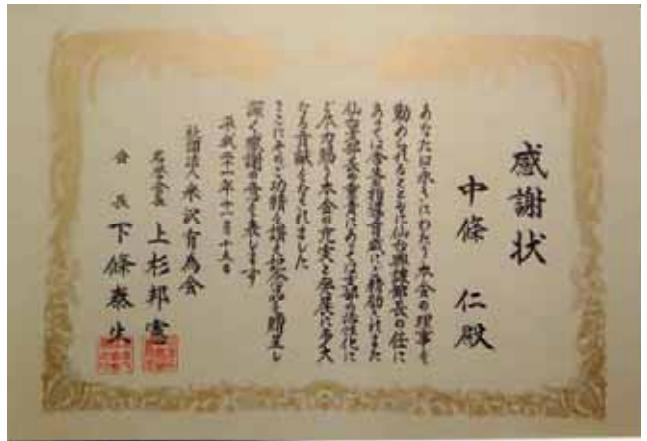 感謝状
中條 仁殿
あなたは永きにわたり本会の理事を
勤められるとともに仙台興譲館長の任に
あっては舎生指導育成にご精励されまた
仙台支部長の重責にあっては支部の活性化に
ご尽力賜り本会の充実と発展に多大
なる貢献をなされました
ここにそのご功績を讃え記念品を贈呈し
深く感謝の意を表します
平成二十一年十一月十五日
社団法人 米沢有為会
名誉会長 上杉邦憲
会長 下條泰生